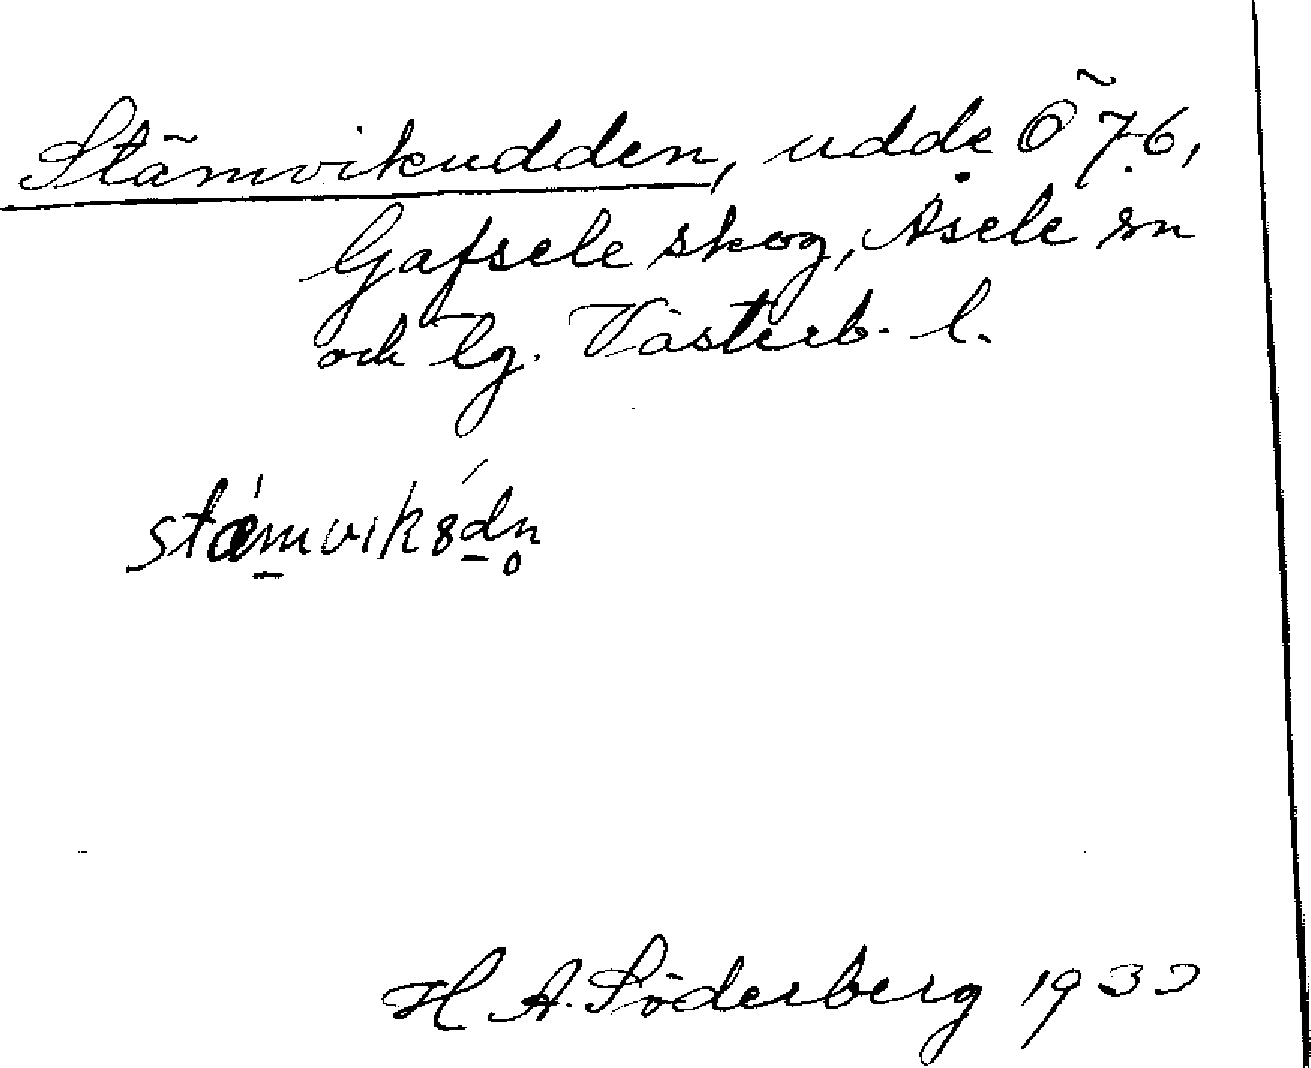 Stämvikudden, udde Ö 76,
Gafsele skog, Åsele sn
och lg. Västerb. l.
stæmvik
H A. Söderberg 1933